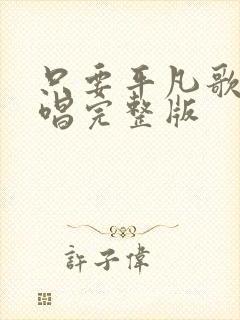 只要平凡歌
唱完整版
許子偉